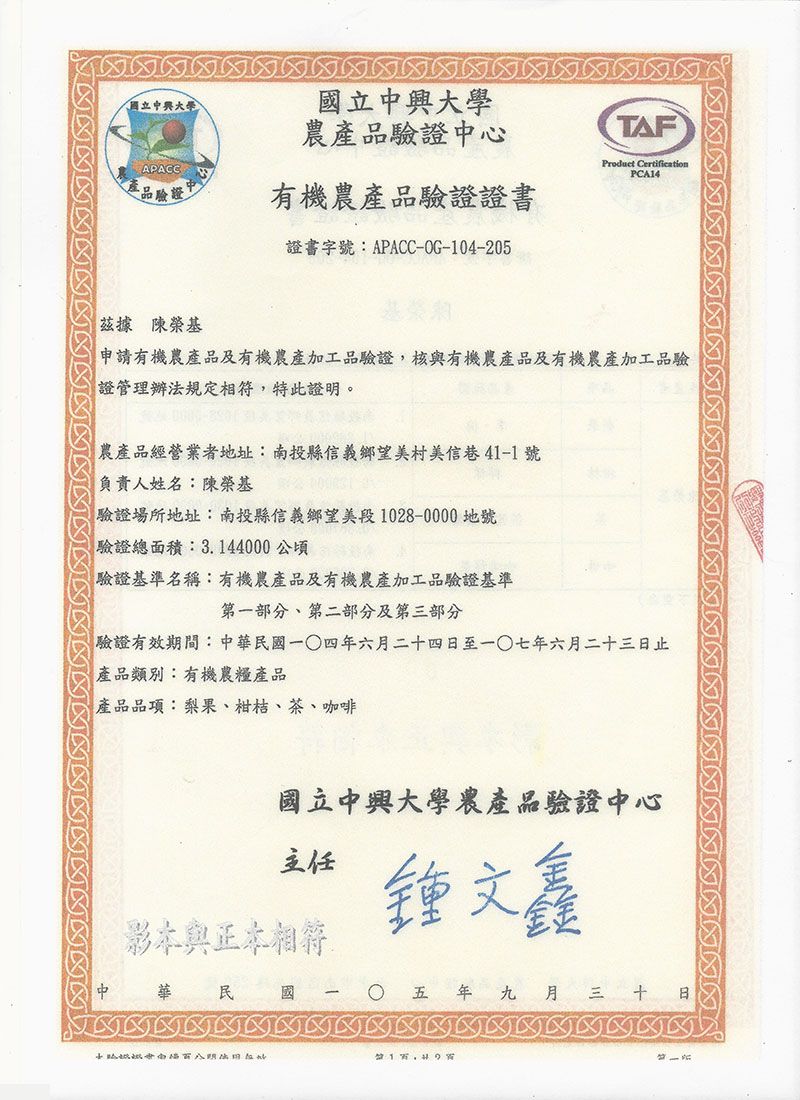 國立中興大學
農產品驗證中心
APACC
國立中興大學
農產品驗證中心
TAF
Product Certification
PCA14
有機農產品驗證證書
證書字號：APACC-OG-104-205
茲據 陳榮基
申請有機農產品及有機農產加工品驗證，核與有機農產品及有機農產加工品驗
證管理辦法規定相符，特此證明。
農產品經營業者地址：南投縣信義鄉望美村美信巷 41-1 號
負責人姓名：陳榮基
驗證場所地址：南投縣信義鄉望美段 1028-0000 地號
驗證總面積：3.144000 公頃
驗證基準名稱：有機農產品及有機農產加工品驗證基準
第一部分、第二部分及第三部分
驗證有效期間：中華民國一〇四年六月二十四日至一〇七年六月二十三日止
產品類別：有機農糧產品
產品品項：梨果、柑桔、茶、咖啡
國立中興大學農產品驗證中心
主任 鍾文鑫
影本與正本相符
中華民國一〇五年九月三十日
第1頁，共2頁